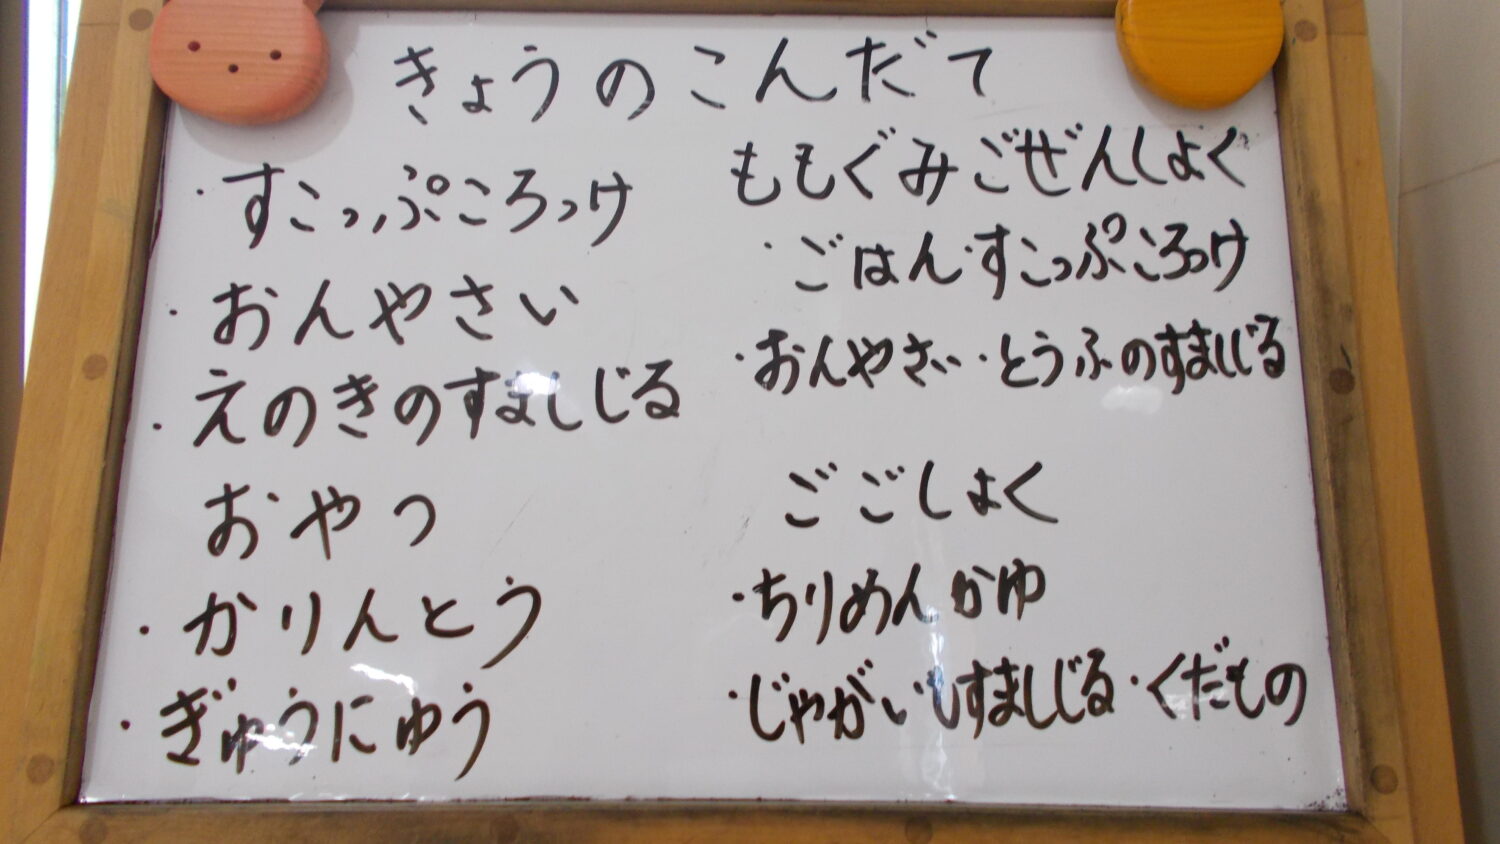 きょうのこんだて
・すこっぷころっけ
・おんやさい
・えのきのすましじる
おやつ
・かりんとう
・ぎゅうにゅう
ももぐみごぜんしょく
・ごはん・すこっぷころっけ
・おんやさい・とうふのすましじる
ごごしょく
・ちりめんかゆ
・じゃがいもすましじる・くだもの